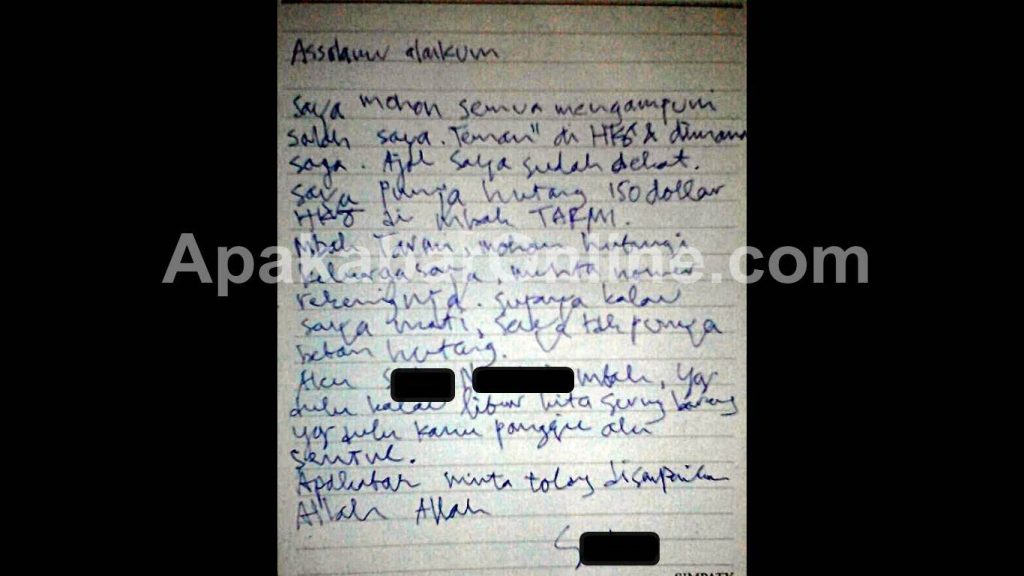 Assalamu alaikum
Saya mohon semua mengampuni
salah saya. Teman" di HKG & dimana
saya. Ajal saya sudah dekat.
saya punya hutang 150 dollar
HKG di mbah TARMI.
Mbah Tarmi, mohon hubungi
keluarga saya, minta nomer
rekeningnya. supaya kalau
saya mati, saya tak punya
beban hutang.
Aku S mbah, yg
dulu kalau libur kita sering bareng
yg dulu kamu panggil aku
sentul.
Apakabar minta tolong disampaikan
Allah Allah
S
SIMPATY
Online.com